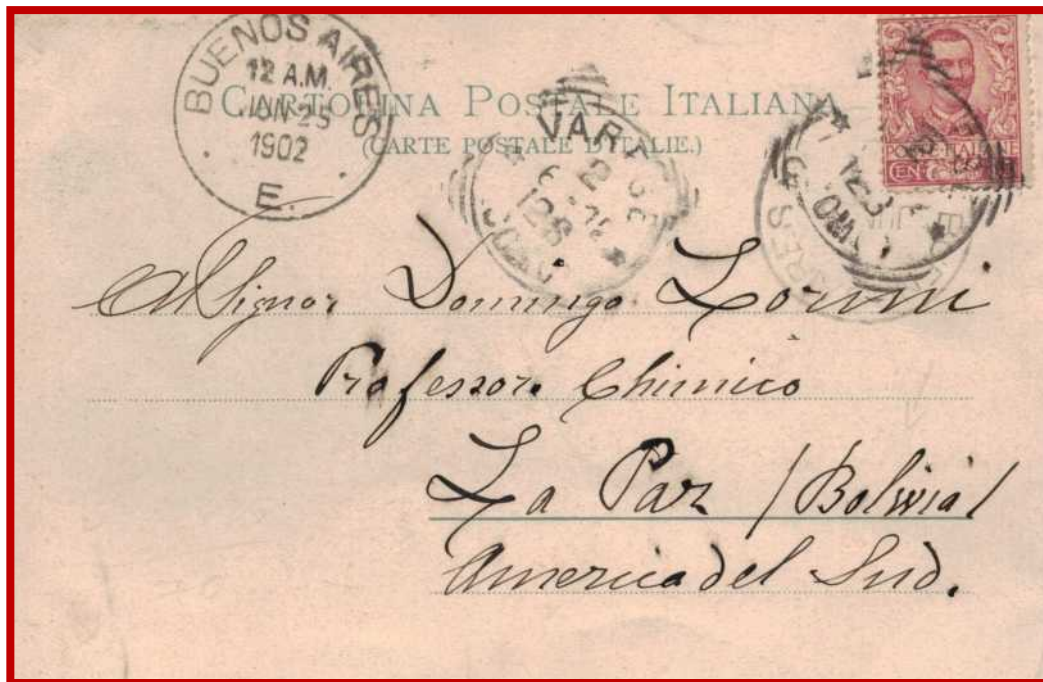 BUENOS AIRES
12 A.M.
JUN 25
1902
E.
CARTOLINA POSTALE ITALIANA
(CARTE POSTALE D'ITALIE.)
Al Signor Domingo Lorini
Professore Chimico
La Paz (Bolivia)
America del Sud.